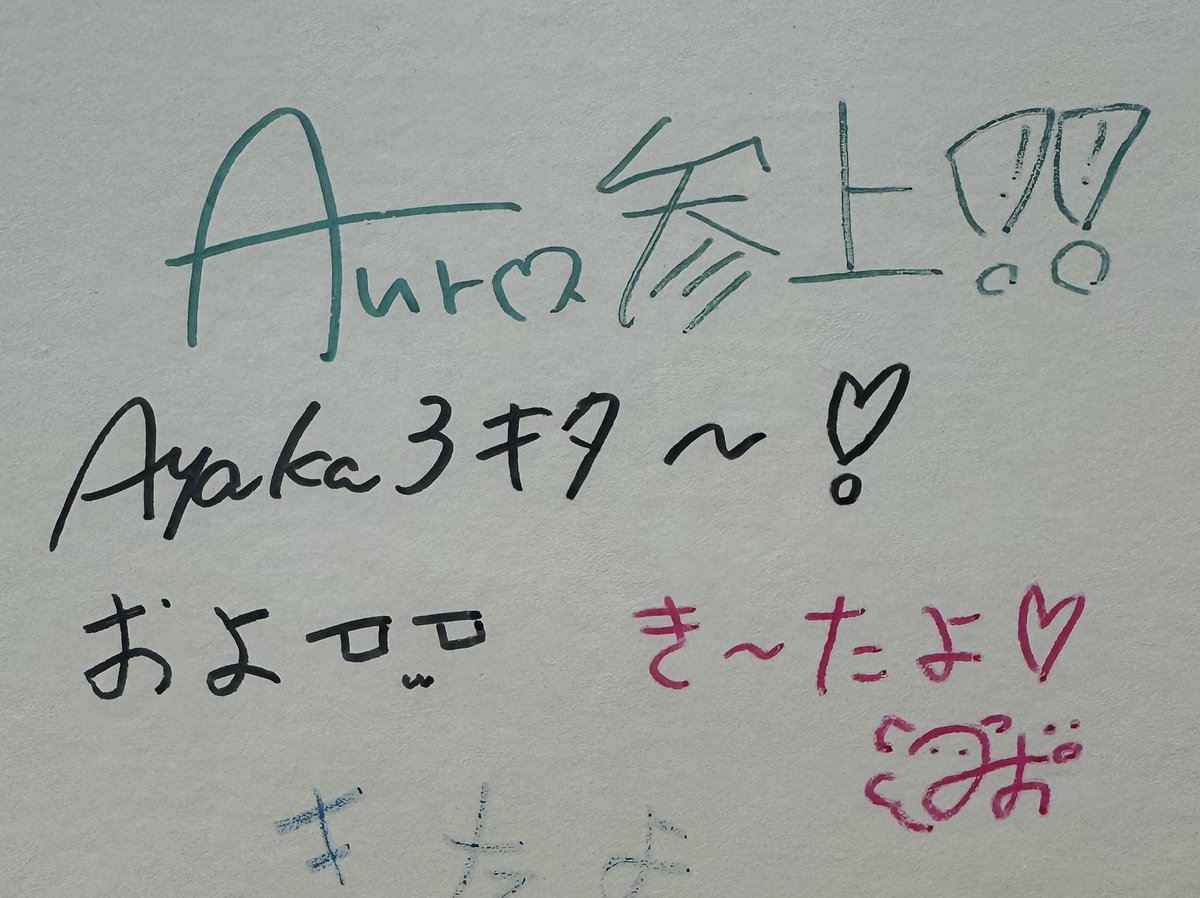 Aura参上!!
Ayaka3キタ〜!
およ
き〜たよ♡
みお
きたよ